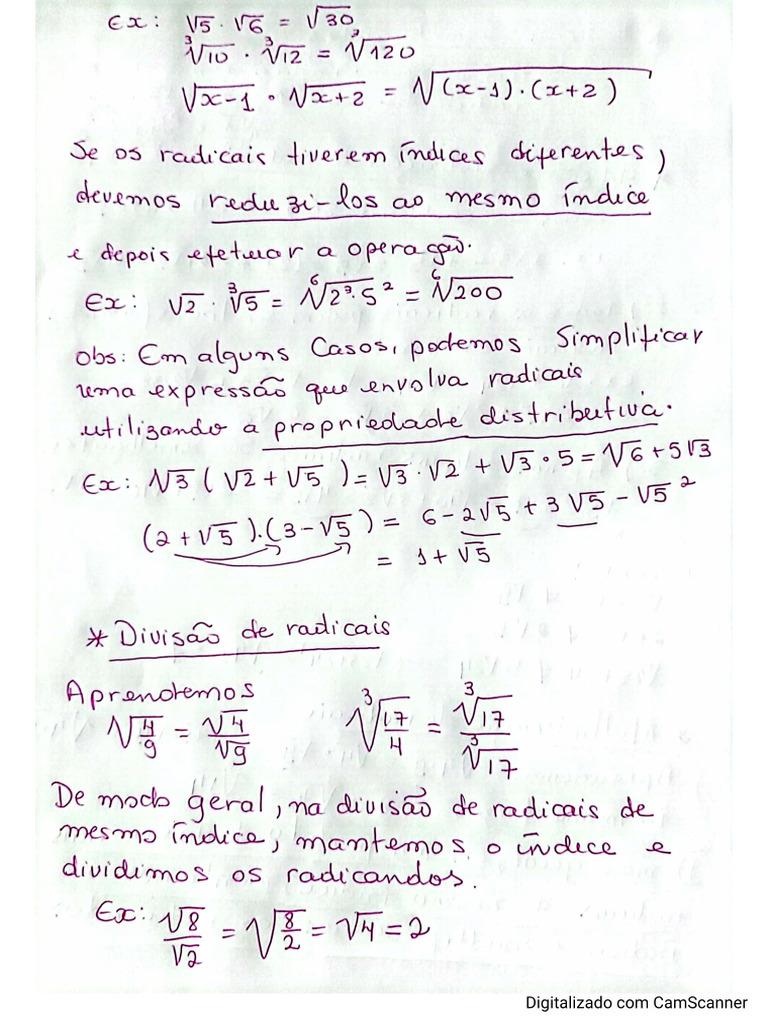 Ex: √5 · √6 = √30
∛10 · ∛12 = ∛120
√x-1 · √x+2 = √(x-1)·(x+2)
Se os radicais tiverem índices diferentes,
devemos reduzi-los ao mesmo índice
e depois efetuar a operação.
Ex: √2 · ∛5 = ⁶√2³·5² = ⁶√200
Obs: Em alguns casos, podemos simplificar
uma expressão que envolva radicais
utilizando a propriedade distributiva.
Ex: √3 (√2 + √5) = √3 · √2 + √3 · 5 = √6 + 5√3
(2 + √5).(3 - √5) = 6 - 2√5 + 3√5 - √5²
= 1 + √5
* Divisão de radicais
Aprendemos
√4/9 = √4/√9    ∛17/4 = ∛17/∛17
De modo geral, na divisão de radicais de
mesmo índice, mantemos o índice e
dividimos os radicandos.
Ex: √8/√2 = √8/2 = √4 = 2
Digitalizado com CamScanner